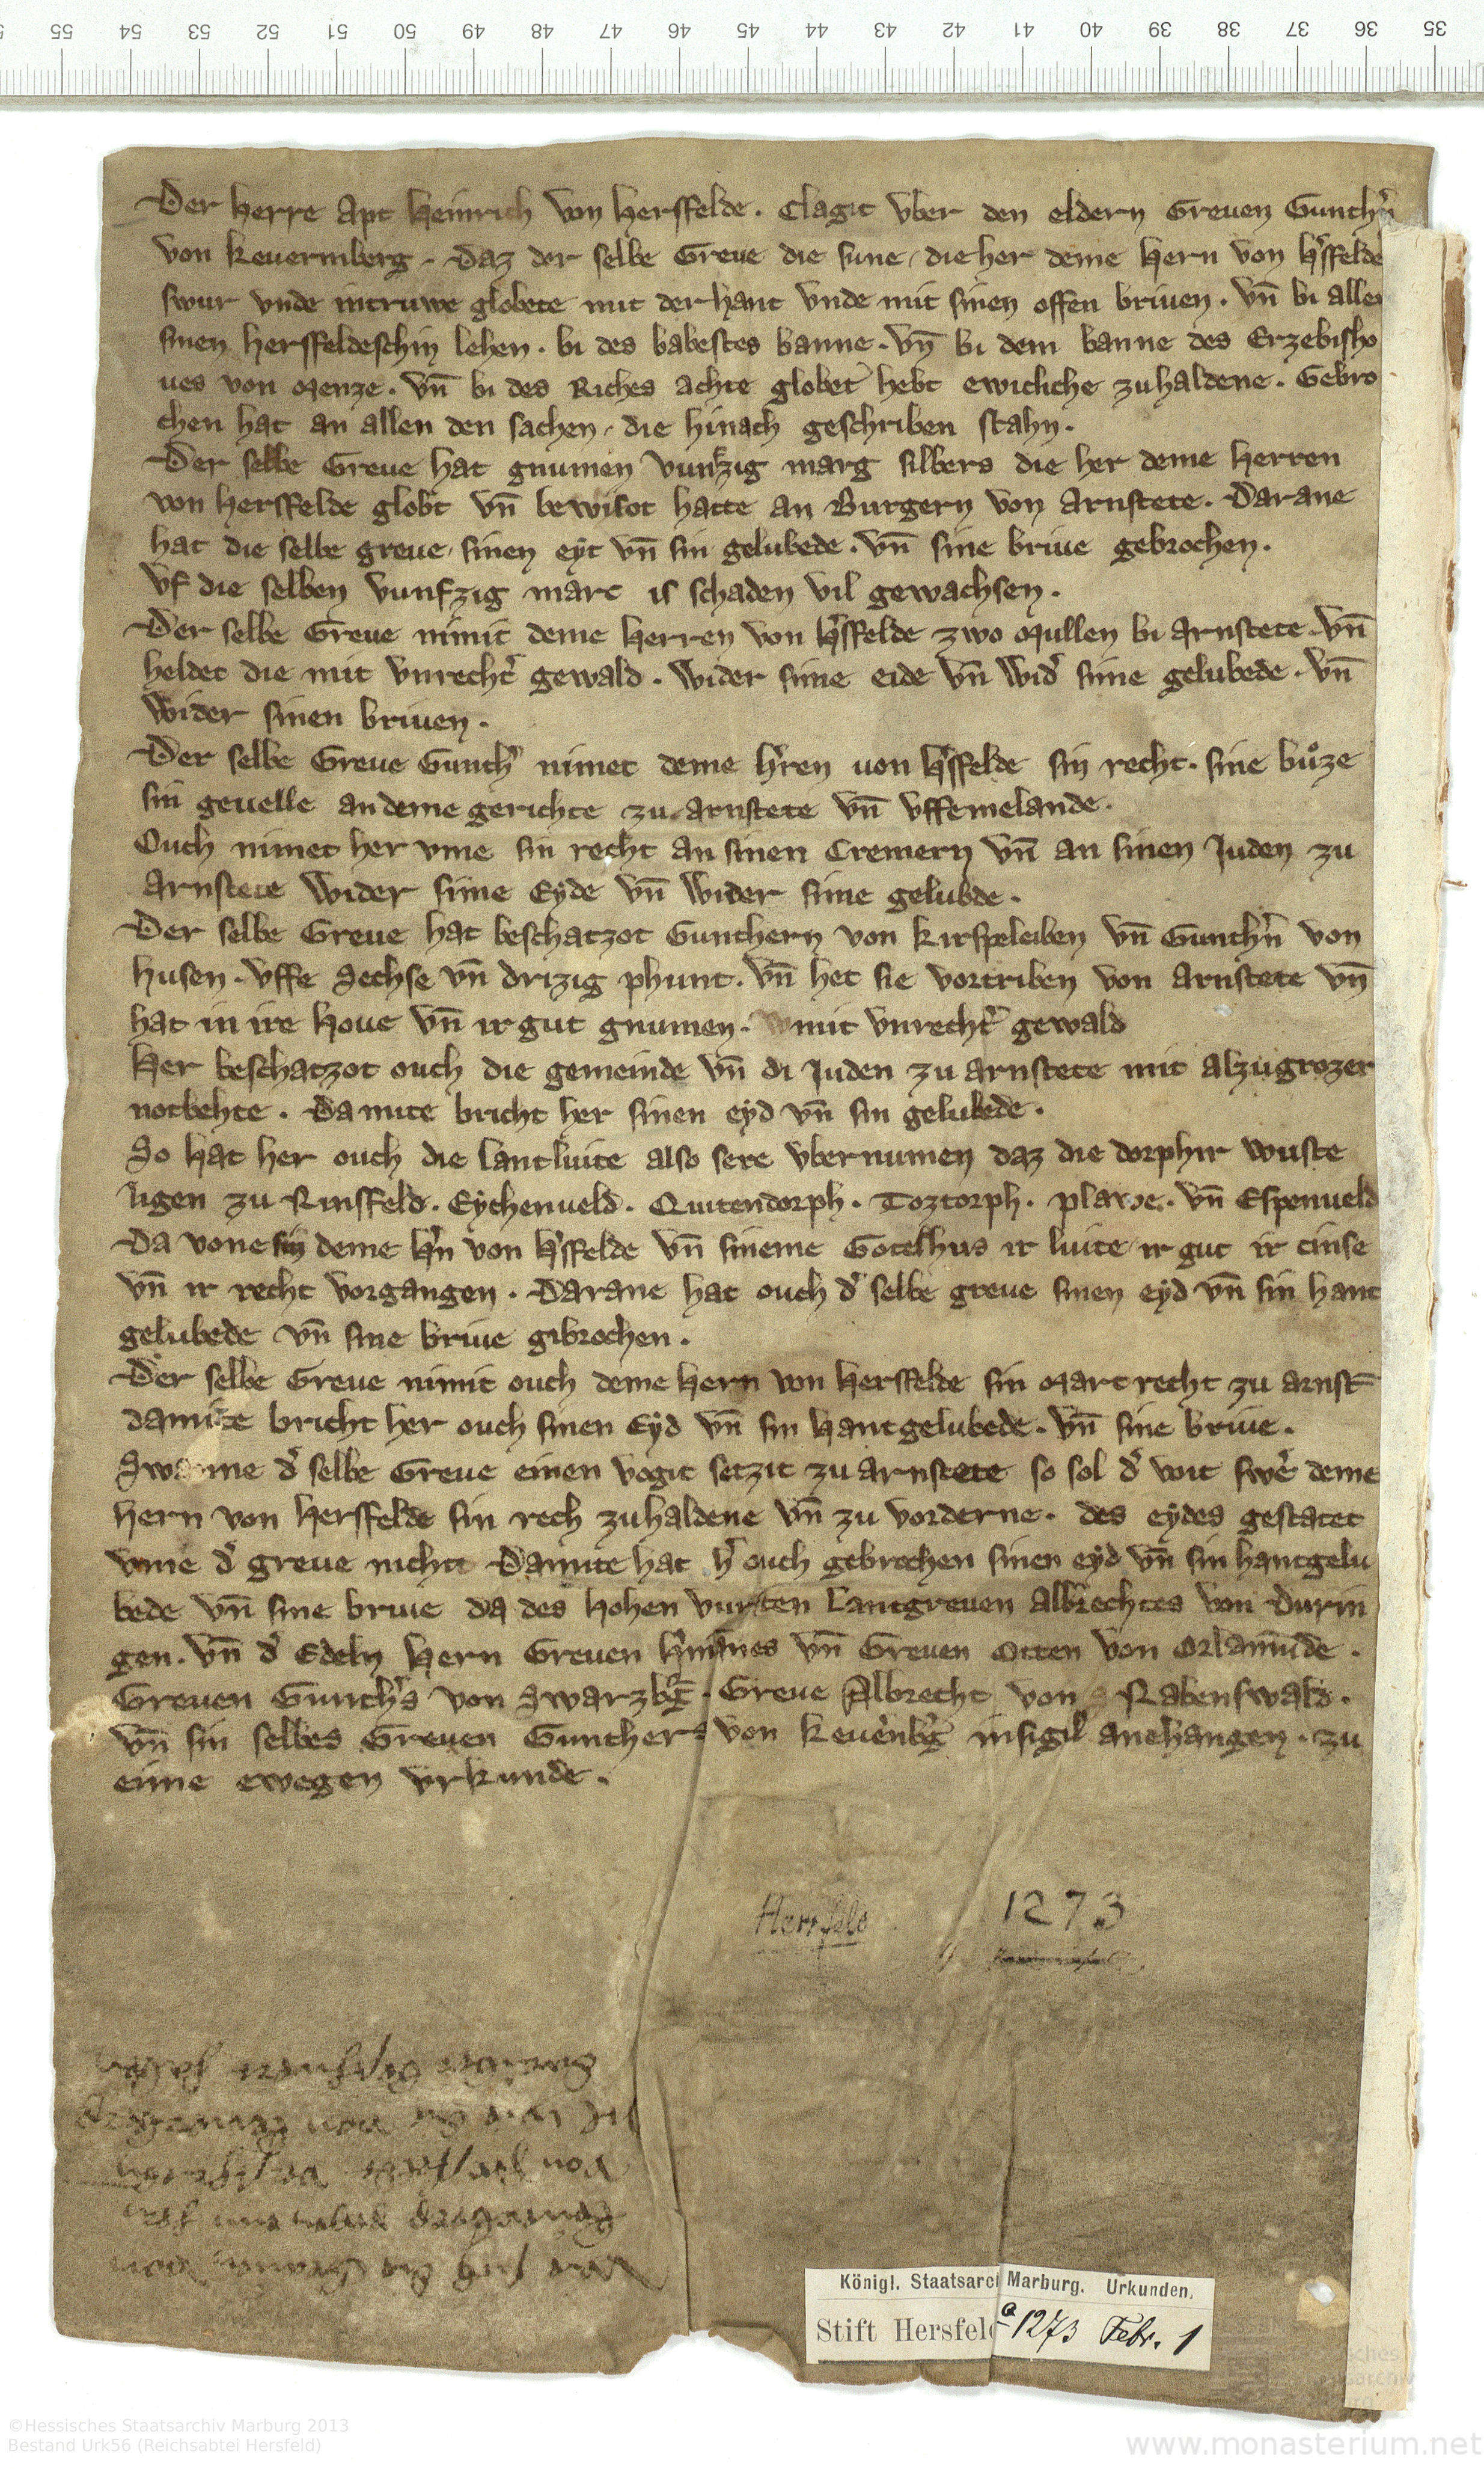 Der Herre Apt Heinrich von Hersffelde. Clagit vber den eldern Greuen Gunth'n
von keuernberg. Daz der selbe Greue die sune, die her deme Hern von H'sffelde
swur vnde intruwe globete mit der hant vnde mit sinen offen briuen. vn̄ bi allen
sinen Hersffeldeschin lehen. bi des babestes banne. vn̄ bi dem banne des Erzebisho
ues von Menze. vn̄ bi des Riches achte globet' hebt ewicliche zuhaldene. Gebro
chen hat an allen den sachen, die hinach geschriben stahn.
Der selbe Greue hat gnumen vunfzig marg silbers die her deme Herren
von Hersffelde globt vn̄ bewisot hatte an Burgern von Arnstete. Darane
hat die selbe greue, sinen eyt vn̄ sin gelubede. vn̄ sine briue gebrochen.
Vf die selben vunfzig marc is schaden vil gewachsen.
Der selbe Greue nimit deme Herren von H'sffelde zwo Mullen bi Arnstete. vn̄
heldet die mit vnrecht' gewald. Wider sime eide vn̄ wid' sime gelubede. vn̄
Wider sinen briuen.
Der selbe Greue Gunth' nimet deme h'ren uon H'sffelde sin recht. sine buͦze
sin geuelle an deme gerichte zu Arnstete vn̄ vffemelande.
Ouch nimet her vme sin recht an sinen Cremern vn̄ an sinen Juden zu
Arnstete Wider sime Eyde vn̄ Wider sime gelubde.
Der selbe Greue hat beschatzot Gunthern von kirspeleiben vn̄ Gunth'n von
husen. vffe Sechse vn̄ drizig phunt. vn̄ het sie vortriben von Arnstete vn̄
hat in ire houe vn̄ ir gut gnumen. mit vnrecht' gewald
Her beschatzot ouch die gemeinde vn̄ di Juden zu Arnstete mit alzugrozer
notbehte. Damite bricht her sinen eyd vn̄ sin gelubede.
So hat her ouch die lantluite also sere vbernumen daz die dorphir wuste
ligen zu Rinsfeld. Eychenueld. Quitendorph. Toztorph. Plawe. vn̄ Espenueld
Da vone sin deme H'n von H'sffelde vn̄ sineme Goteshus ir luite, ir gut ir cinse
vn̄ ir recht vorgangen. Darane hat ouch d' selbe greue sinen eyd vn̄ sin hant
gelubede vn̄ sine briue gibrochen.
Der selbe Greue nimit ouch deme Hern von Hersffelde sin Mart recht zu Arnst̄
damite bricht her ouch sinen Eyd vn̄ sin Hantgelubede. vn̄ sine briue.
Swanne d' selbe Greue einen vogit setzit zu Arnstete so sol d' voit swe' deme
Hern von Hersffelde sin rech zuhaldene vn̄ zu vorderne. des eydes gestatet
vme d' greue nicht Damite hat h' ouch gebrochen sinen eyd vn̄ sin hantgelu
bede vn̄ sine briue da des Hohen vursten Lantgreuen Albrechtes von Durin
gen. vn̄ d' Edeln Hern Greuen H'mānes vn̄ Greuen Otten von Orlamūde.
Greuen Gunth's von Swarzb'g. Greue Albrecht von Rabenswald.
vn̄ sin selbes Greuen Gunthers von keuernb'g insigil anehangen. zu
eime ewegen vrkunde.
Hersfeld 1273
Königl. Staatsarch Marburg. Urkunden.
Stift Hersfeld a 1273 Febr. 1
©Hessisches Staatsarchiv Marburg 2013
Bestand Urk56 (Reichsabtei Hersfeld)
www.monasterium.net
55 54 53 52 51 50 49 48 47 46 45 44 43 42 41 40 39 38 37 36 35